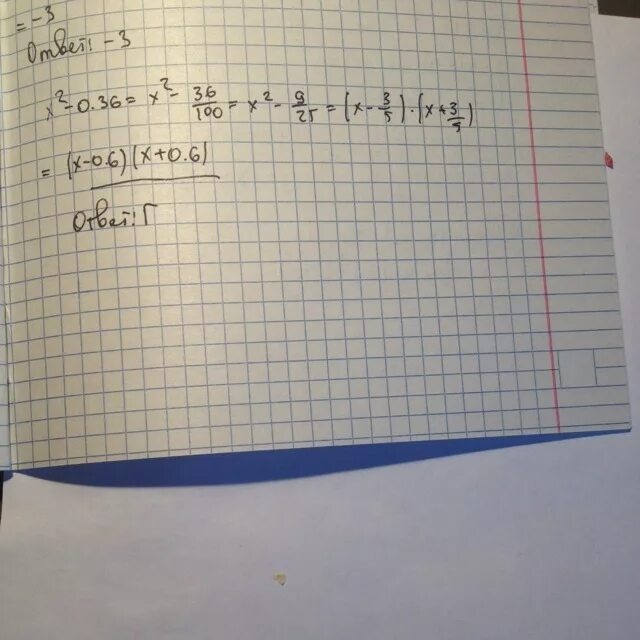 = -3
Ответ: -3
x² - 0.36 = x² - 36/100 = x² - 9/25 = (x - 3/5) · (x + 3/5)
= (x-0.6)(x+0.6)
Ответ: Г